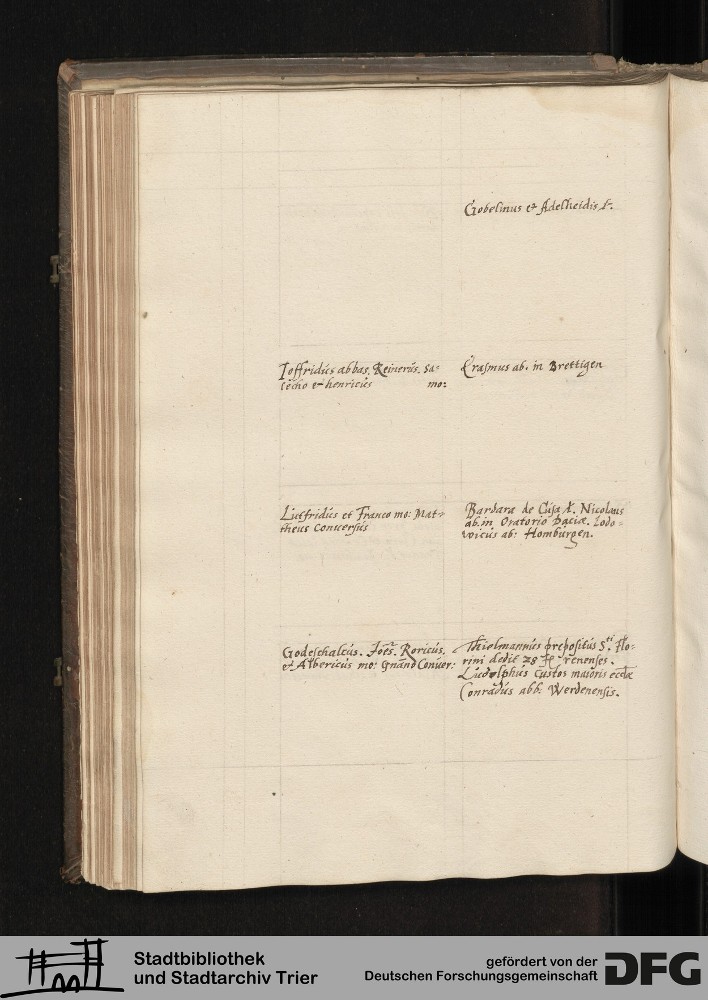 Gobelinus et Adelheidis l.
Joffridus abbas. Reinerus. Sa-
cecho et henricus mo:
Erasmus ab. in Brettigen
Lutfridus et Franco mo: Mat-
theus Conversus
Barbara de Cusa l. Nicolaus
ab. in Oratorio Daciæ. Lodo-
wicus ab: Homburgen.
Godeschalcus. Joēs. Roricus.
et Albericus mo: Gnand Conver:
Thielmannus prepositus S.ti Flo-
rini dedit 28 fl renenses.
Ludolphus custos maioris eccl̄æ
Conradus abb. Werdenensis.
Stadtbibliothek
und Stadtarchiv Trier
gefördert von der
Deutschen Forschungsgemeinschaft
DFG